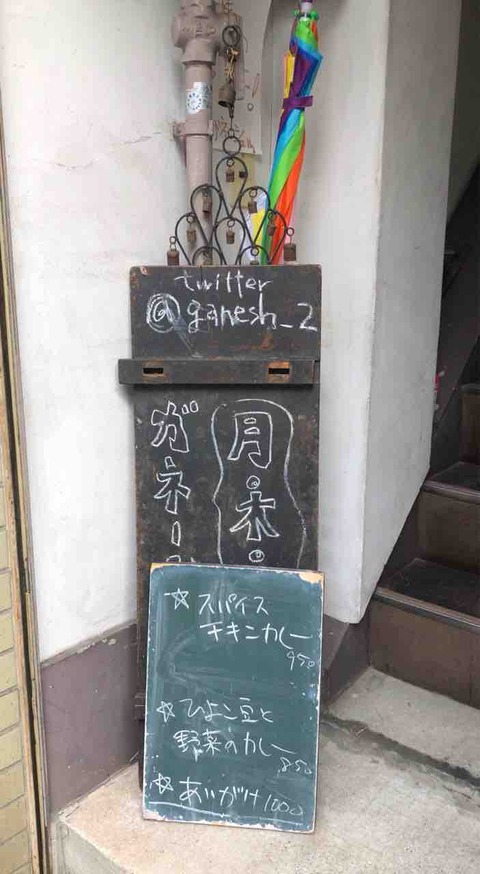 twitter
@ganesh_2
月・木・
ガネー
☆スパイス
チキンカレー
950
☆ひよこ豆と
野菜のカレー
850
☆あいがけ1000